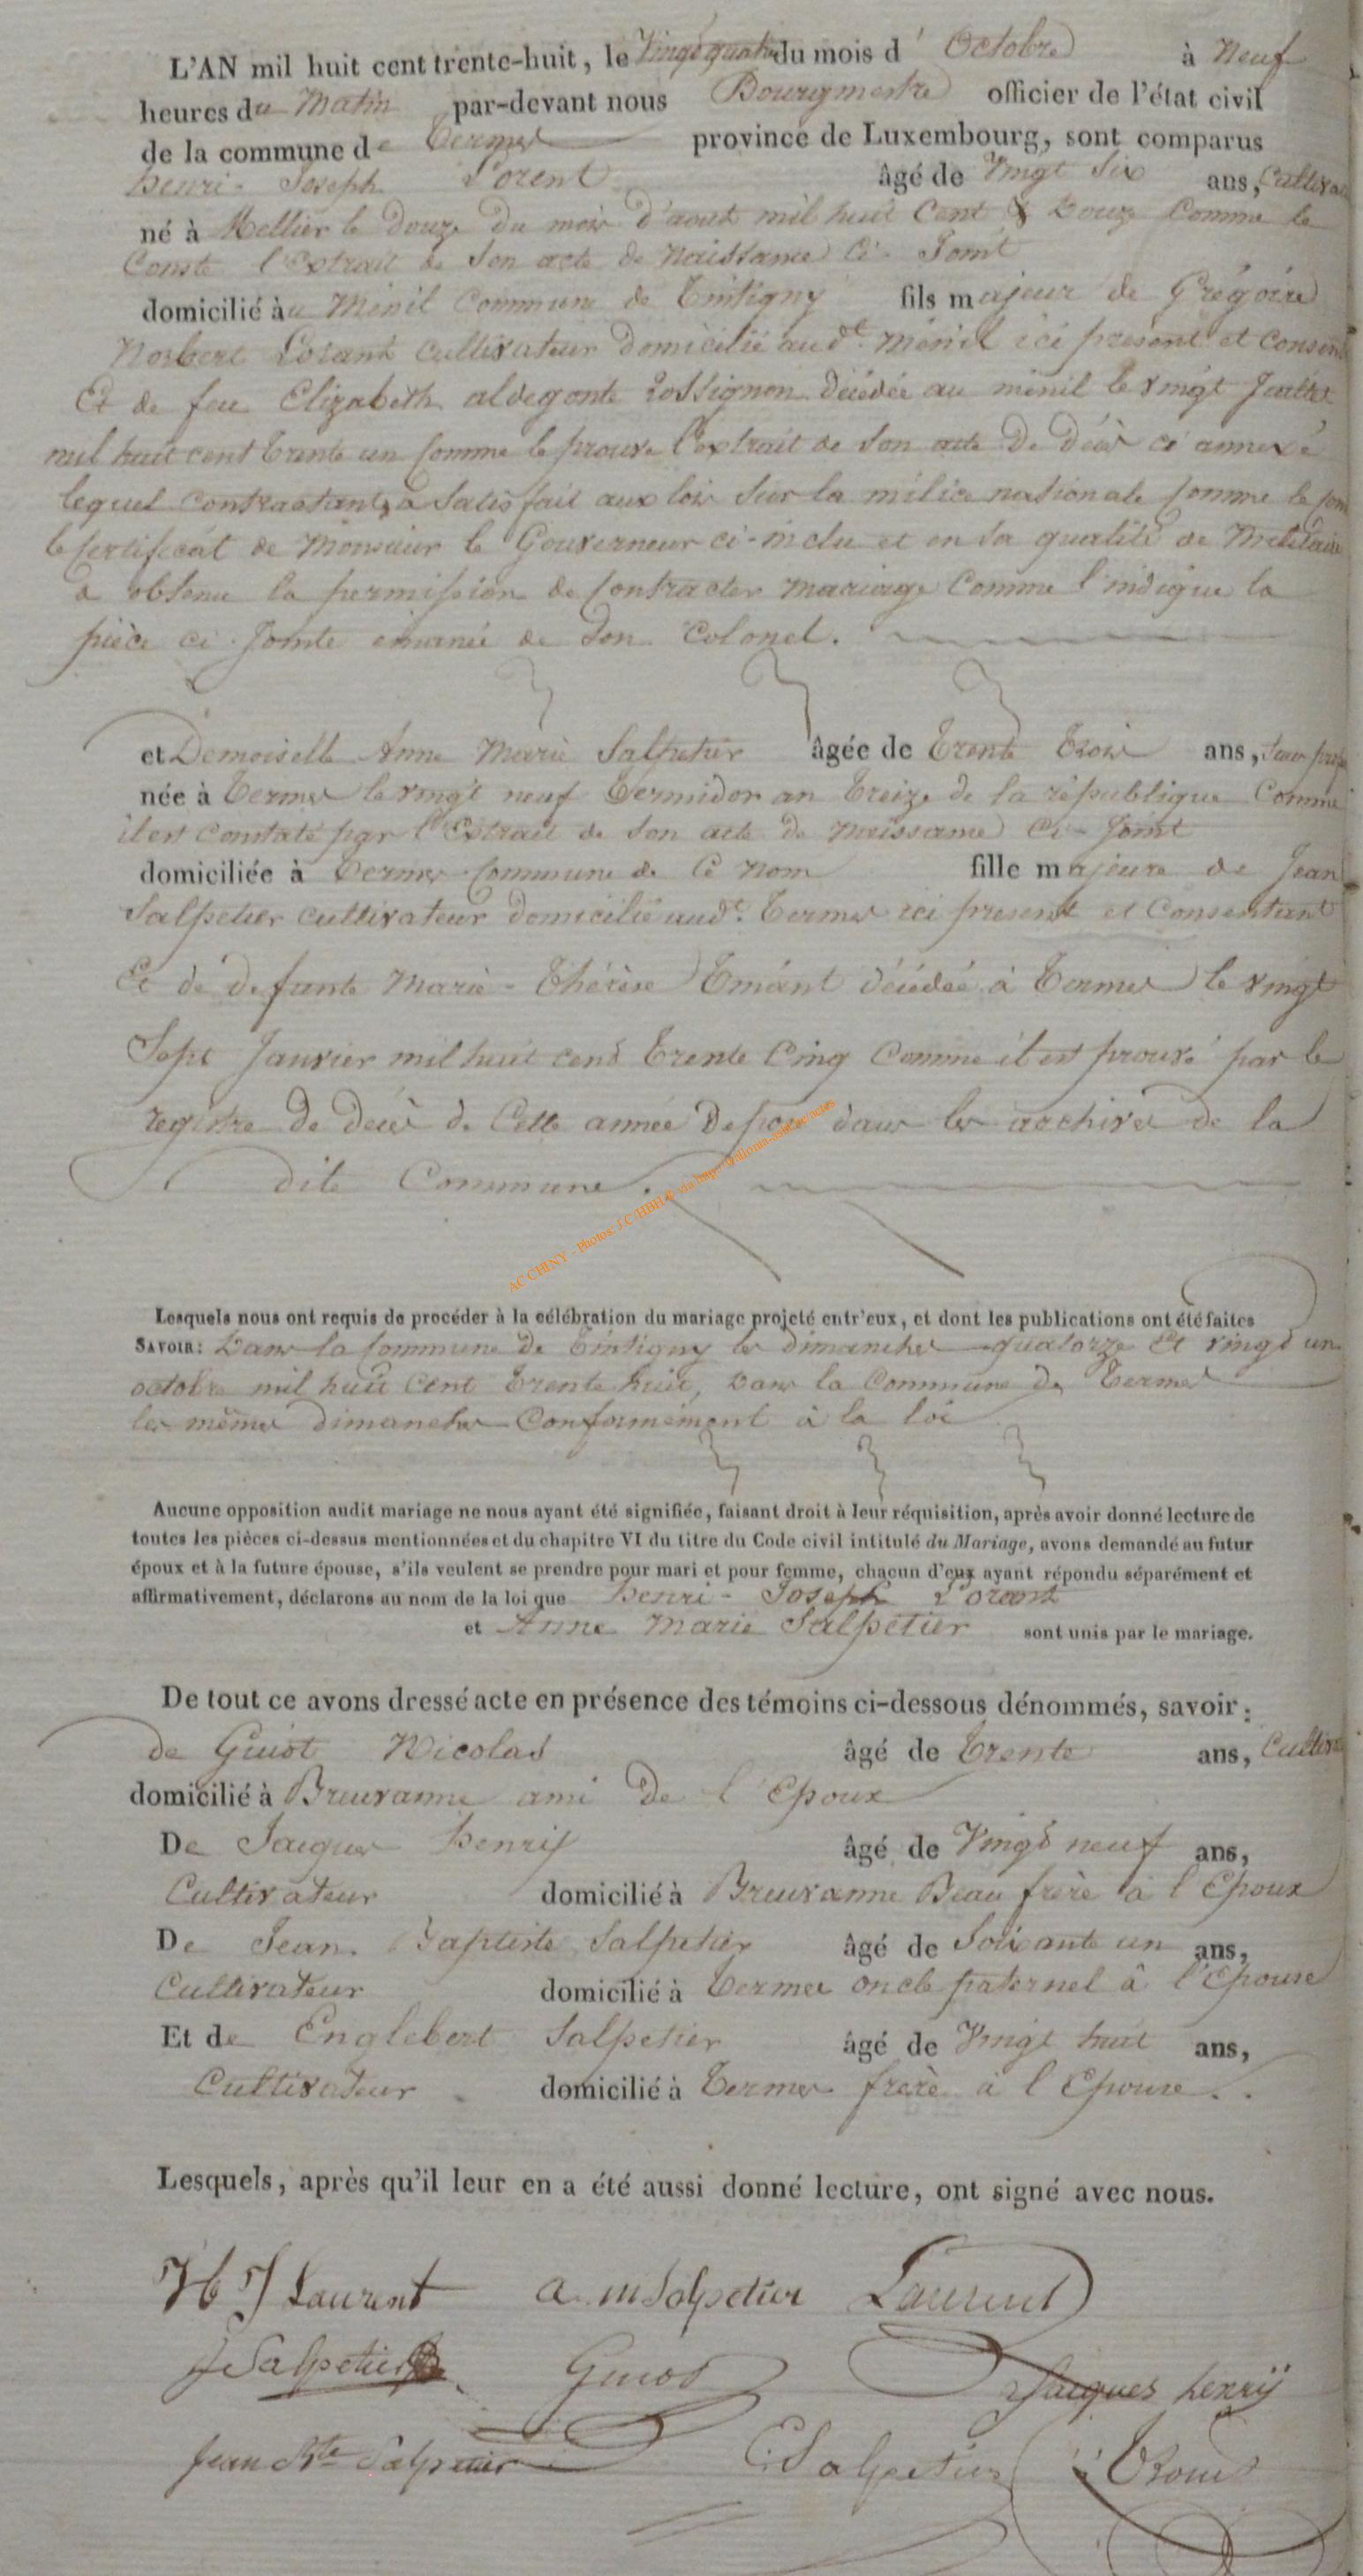 L'AN mil huit cent trente-huit, le Vingt quatre du mois d' Octobre à Neuf
heures du Matin par-devant nous Bourgmestre officier de l'état civil
de la commune de Termes province de Luxembourg, sont comparus
henri - Joseph Lorent âgé de Vingt Six ans, Cultiva
né à Mellier le Douze Du mois d'aout mil huit Cent & Douze Comme le
Conste l'Extrait de Son acte de Naissance Ci-Joint
domicilié au Ménil Commune de Tintigny fils majeur de Grégoire
Norbert Lorant Cultivateur Domicilié aud.t ménil ici présent et Consent
Et de feu Elizabeth aldegonte Rossignon Décédée au ménil le vingt Juillet
mil huit cent trente un Comme le prouve l'extrait de Son acte De décès ci annexé
lequel Contractant a Satisfait aux lois Sur la milice nationale Comme le
le Certificat de Monsieur le Gouverneur ci-inclu et en Sa qualité de Militaire
a obtenu la permission de Contracter mariage Comme l'indique la
pièce ci-Jointe émanée de Son Colonel.
et Demoiselle Anne Marie Salpetier âgée de Trente Trois ans,
née à Termes le vingt neuf Termidor an Treize de la république Comme
il est Constaté par l'Extrait de Son acte de Naissance Ci-Joint
domiciliée à Termes Commune de Ce Nom fille majeure de Jean
Salpetier cultivateur domicilié aud.t Termes ici present et Consentant
Et de defunte Marie-Thérèse Emânt décédée à Termes le vingt
Sept Janvier mil huit cent Trente Cinq Comme il est prouvé par le
registre De décès de Cette année Deposé dans les archives de la
dite Commune.
AC CHINY - Photos: J.C.
Lesquels nous ont requis de procéder à la célébration du mariage projeté entr'eux, et dont les publications ont été faites
SAVOIR: Dans la Commune de Tintigny les dimanches quatorze Et vingt un
octobre mil huit Cent Trente huit, Dans la Commune de Termes
les mêmes Dimanches Conformément à la loi
Aucune opposition audit mariage ne nous ayant été signifiée, faisant droit à leur réquisition, après avoir donné lecture de
toutes les pièces ci-dessus mentionnées et du chapitre VI du titre du Code civil intitulé du Mariage, avons demandé au futur
époux et à la future épouse, s'ils veulent se prendre pour mari et pour femme, chacun d'eux ayant répondu séparément et
affirmativement, déclarons au nom de la loi que henri - Joseph Lorant
et Anne Marie Salpetier sont unis par le mariage.
De tout ce avons dressé acte en présence des témoins ci-dessous dénommés, savoir:
de Guiot Nicolas âgé de Trente ans, Cultiva
domicilié à Breuvanne ami De l'Epoux
De Jacques henrij âgé de Vingt neuf ans,
Cultivateur domicilié à Breuvanne Beau frère à l'Epoux
De Jean Baptiste Salpetier âgé de Soixante un ans,
Cultivateur domicilié à Termes oncle paternel à l'Epouse
Et de Englebert Salpetier âgé de Vingt huit ans,
Cultivateur domicilié à Termes frère à l'Epouse.
Lesquels, après qu'il leur en a été aussi donné lecture, ont signé avec nous.
H J Laurent a. m Salpetier Laurent
J Salpetier Guiot Jacques henrij
Jean Bte Salpetier E. Salpetier